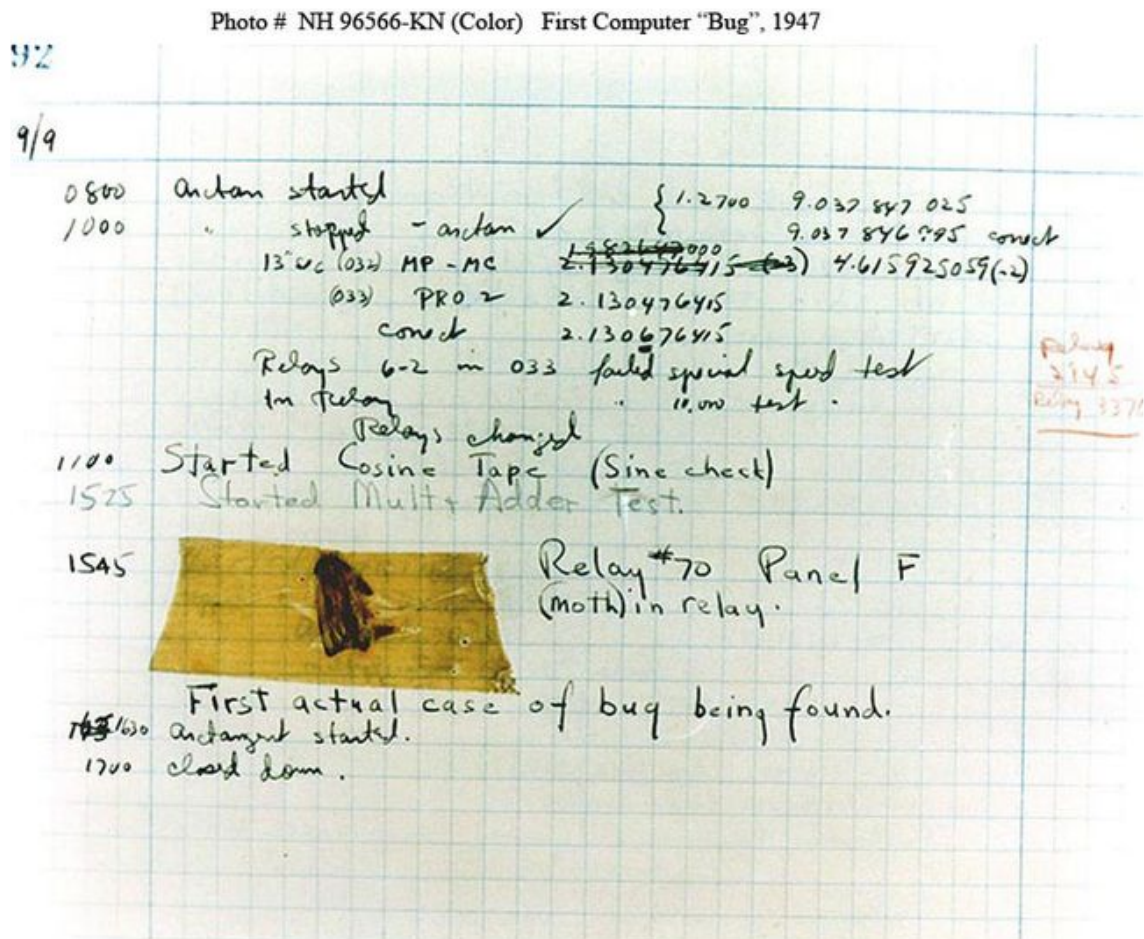 Photo # NH 96566-KN (Color) First Computer “Bug”, 1947
92
9/9
0800 arctan started { 1.2700 9.037 847 025
1000 " stopped - arctan ✓ 9.037 846 995 correct
13" uc (032) MP - MC 2.130476415 (-3) 4.615925059(-2)
(033) PRO 2 2.130476415
correct 2.130676415
Relays 6-2 in 033 failed special speed test
In Relay " 10,000 test .
Relay
2145
Relay 3371
Relays changed
1100 Started Cosine Tape (Sine check)
1525 Started Mult + Adder Test.
1545 Relay #70 Panel F
(moth) in relay.
First actual case of bug being found.
1630 arctangent started.
1700 closed down.